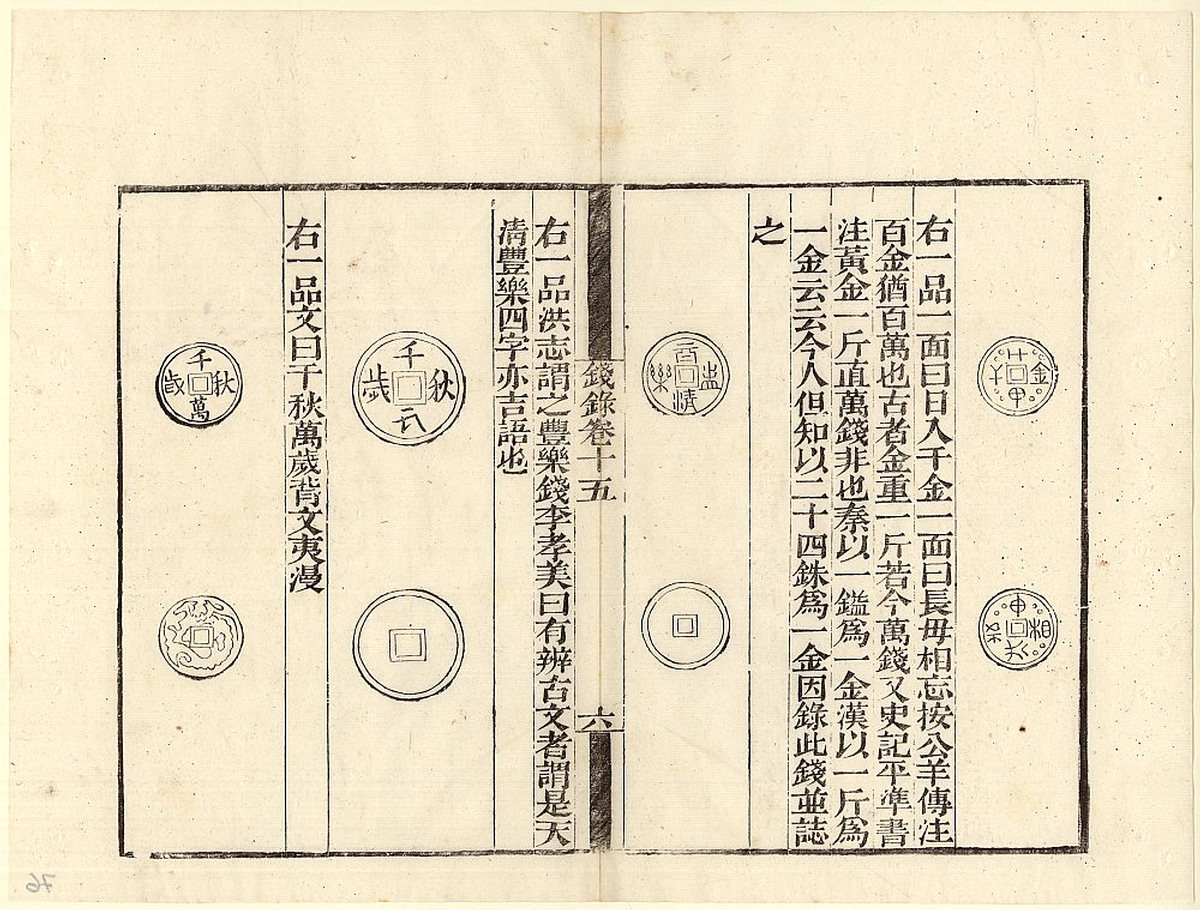 右一品一面曰日入千金一面曰長毋相忘按公羊傳注
百金猶百萬也古者金重一斤若今萬錢又史記平準書
注黃金一斤直萬錢非也秦以一鎰爲一金漢以一斤爲
一金云云今人但知以二十四銖爲一金因錄此錢並誌
之
錢錄卷十五
六
右一品洪志謂之豐樂錢李孝美曰有辨古文者謂是天
清豐樂四字亦吉語也
千秋
歲
右一品文曰千秋萬歲背文夷漫
千秋萬歲
76